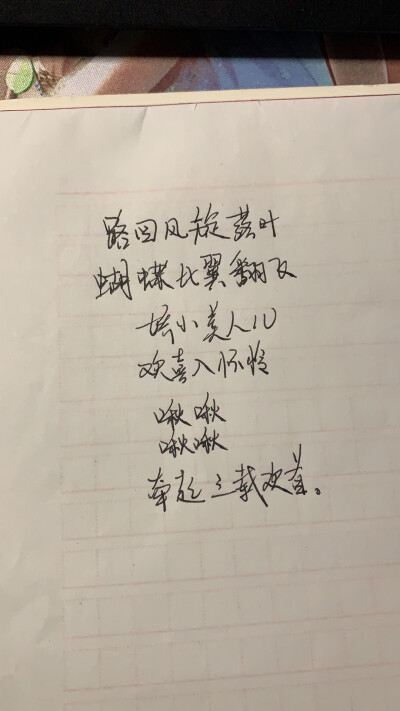 路回风旋落叶
蝴蝶比翼翻飞
娇小美人儿
欢喜入怀怜
啾啾
啾啾
牵起三载欢喜。